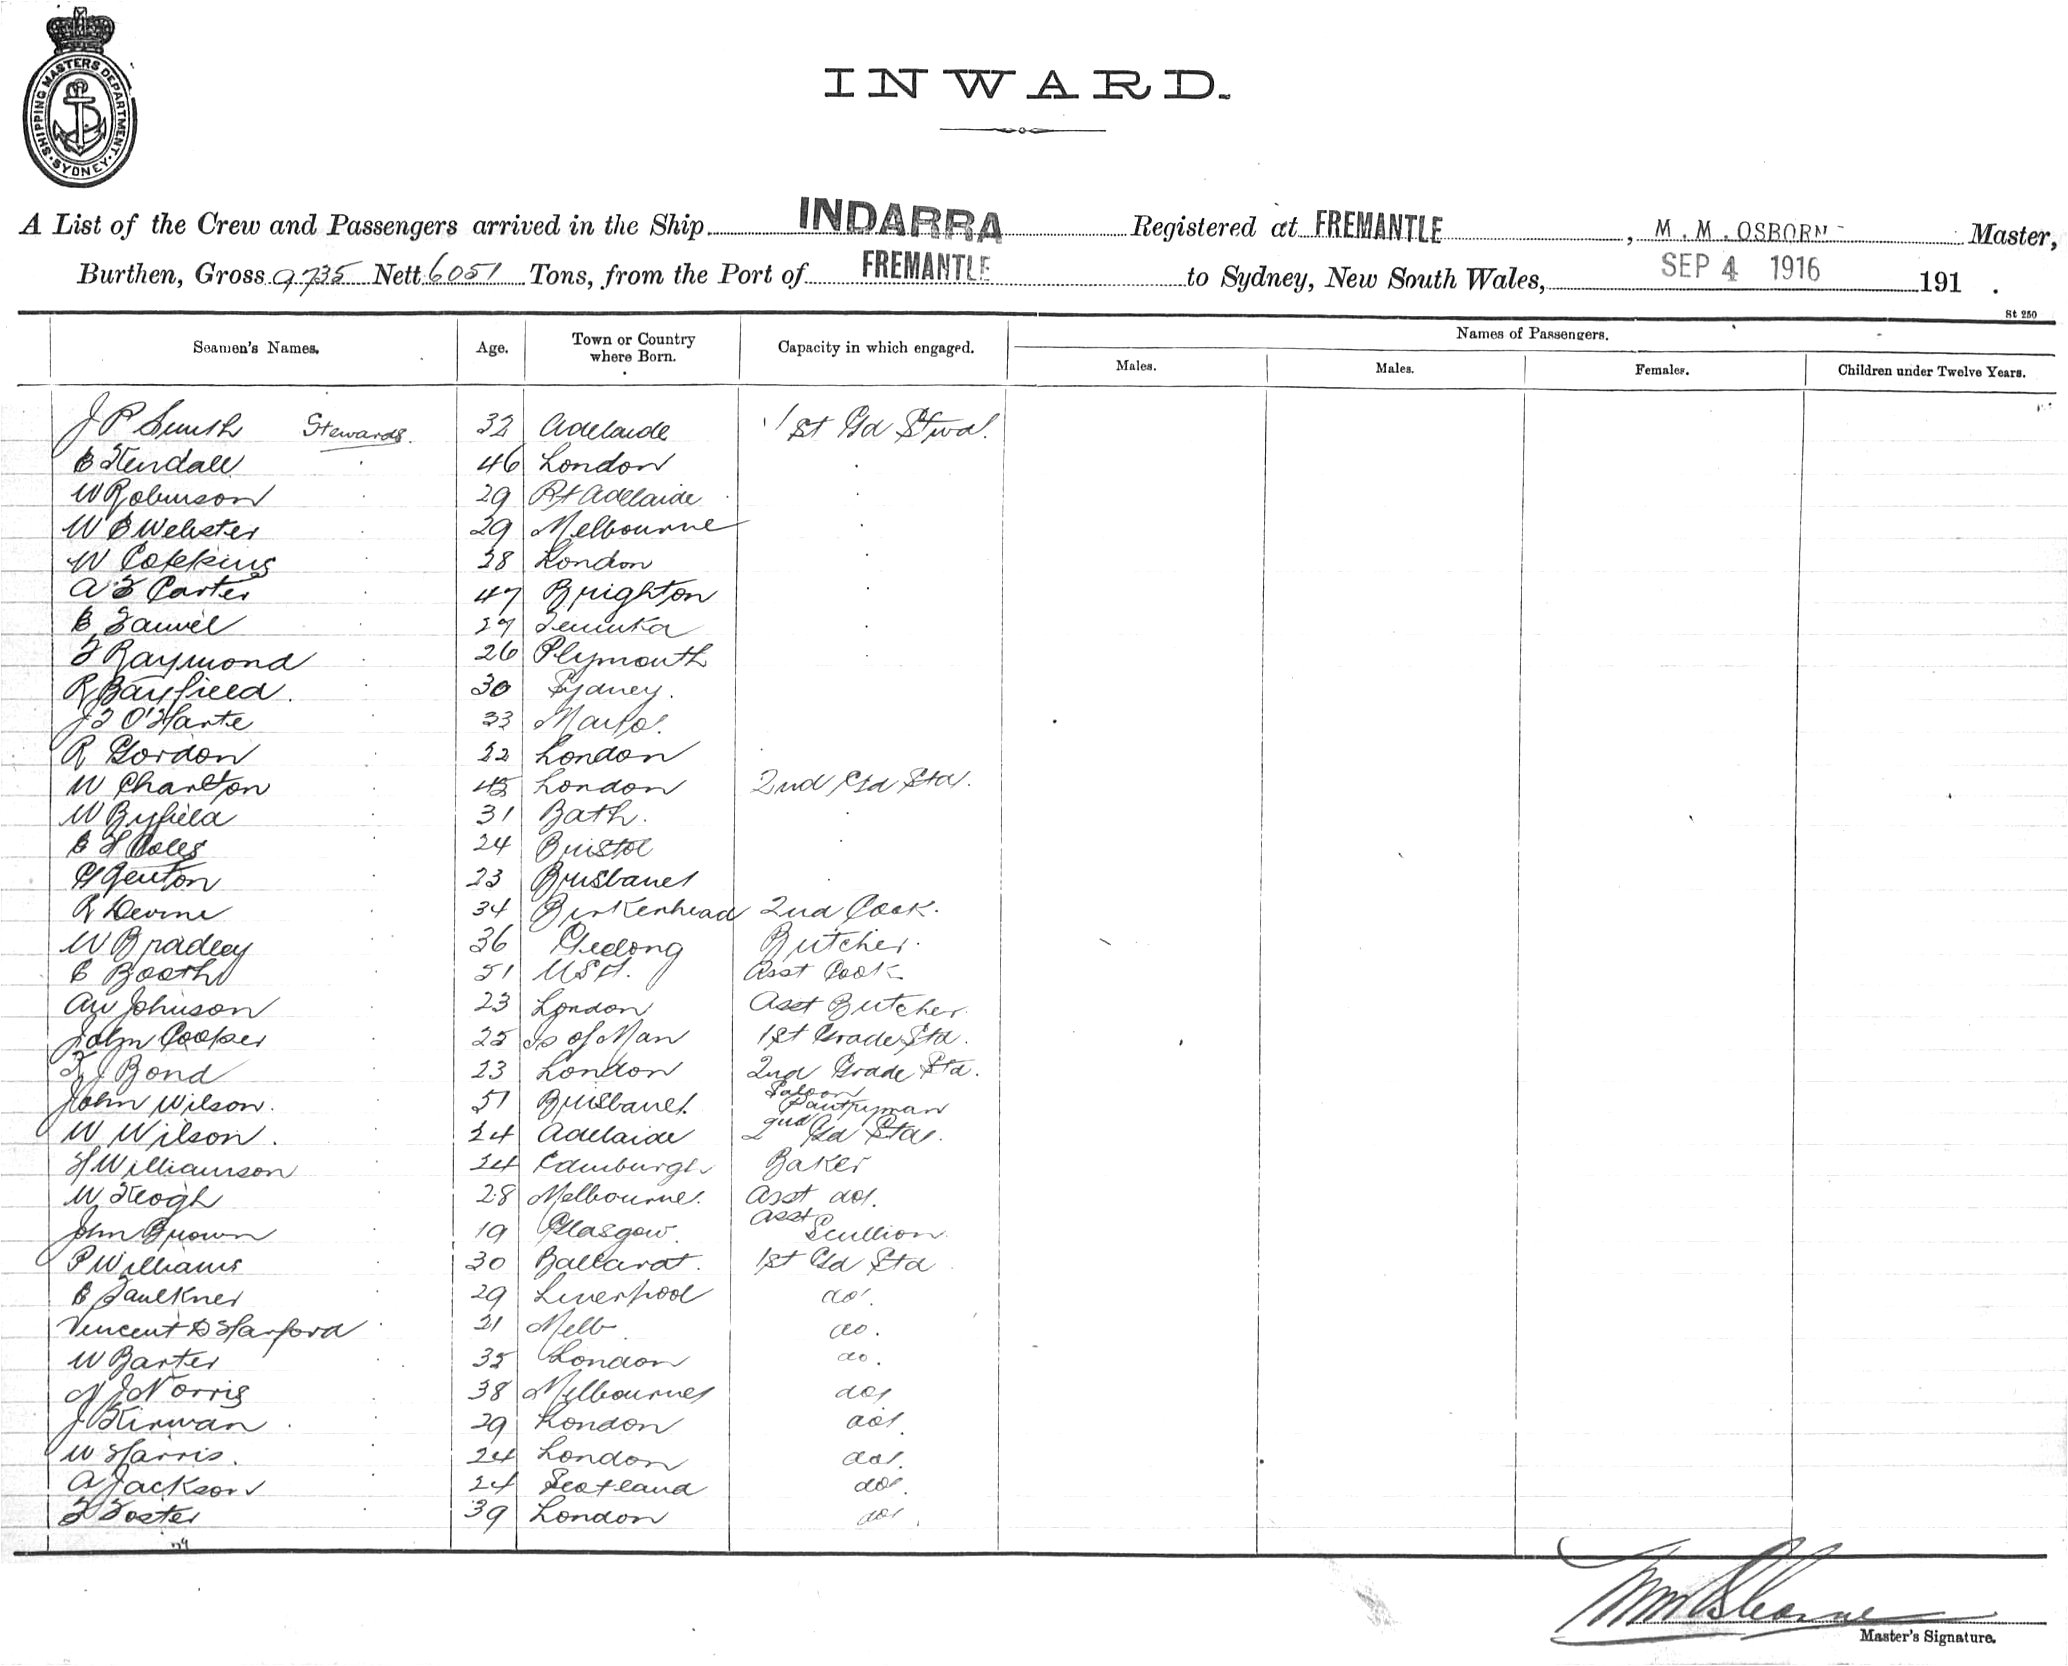 SHIPPING MASTERS DEPARTMENT
SYDNEY
INWARD.
A List of the Crew and Passengers arrived in the Ship INDARRA Registered at FREMANTLE, M. M. OSBORN Master,
Burthen, Gross 9735 Nett 6051 Tons, from the Port of FREMANTLE to Sydney, New South Wales, SEP 4 1916 191 .
St 250
Seamen's Names. Age. Town or Country where Born. Capacity in which engaged. Names of Passengers.
Males. Males. Females. Children under Twelve Years.
J P Smith Stewards. 32 Adelaide 1st Gd Stwd.
E Kendall 46 London
W Robinson 29 Pt Adelaide
W E Webster 29 Melbourne
W Copkins 28 London
A F Carter 47 Brighton
E 27 Temuka
F Raymond 26 Plymouth
R Bayfield. 30 Sydney.
J F O'Harte 33
R Gordon 22 London
W Charlton 45 London 2nd Gd Std.
W Byfield 31 Bath.
E H Coles 24 Bristol
G Renton 23 Brisbane
R Devine 34 Birkenhead 2nd Cook.
W Bradley 36 Geelong Butcher.
E Booth 51 USA. Asst Cook
AW Johnson 23 London Asst Butcher.
John Cooper 25 Is of Man 1st Grade Std.
F J Bond 23 London 2nd Grade Std.
John Wilson. 51 Brisbane Saloon Pantryman
W Wilson. 24 Adelaide 2nd Gd Std.
H Williamson 24 Edinburgh Baker
W Keogh 28 Melbourne. Asst do.
John Brown 19 Glasgow. Asst Scullion
P Williams 30 Ballarat. 1st Gd Std
E Faulkner 29 Liverpool do.
Vincent D Harford 21 Melb do.
W Barter 35 London do.
N J Norris 38 Melbourne do
J Kirwan 29 London do.
W Harris. 24 London do.
A Jackson 24 Scotland do.
F Foster 39 London do.
Master's Signature.